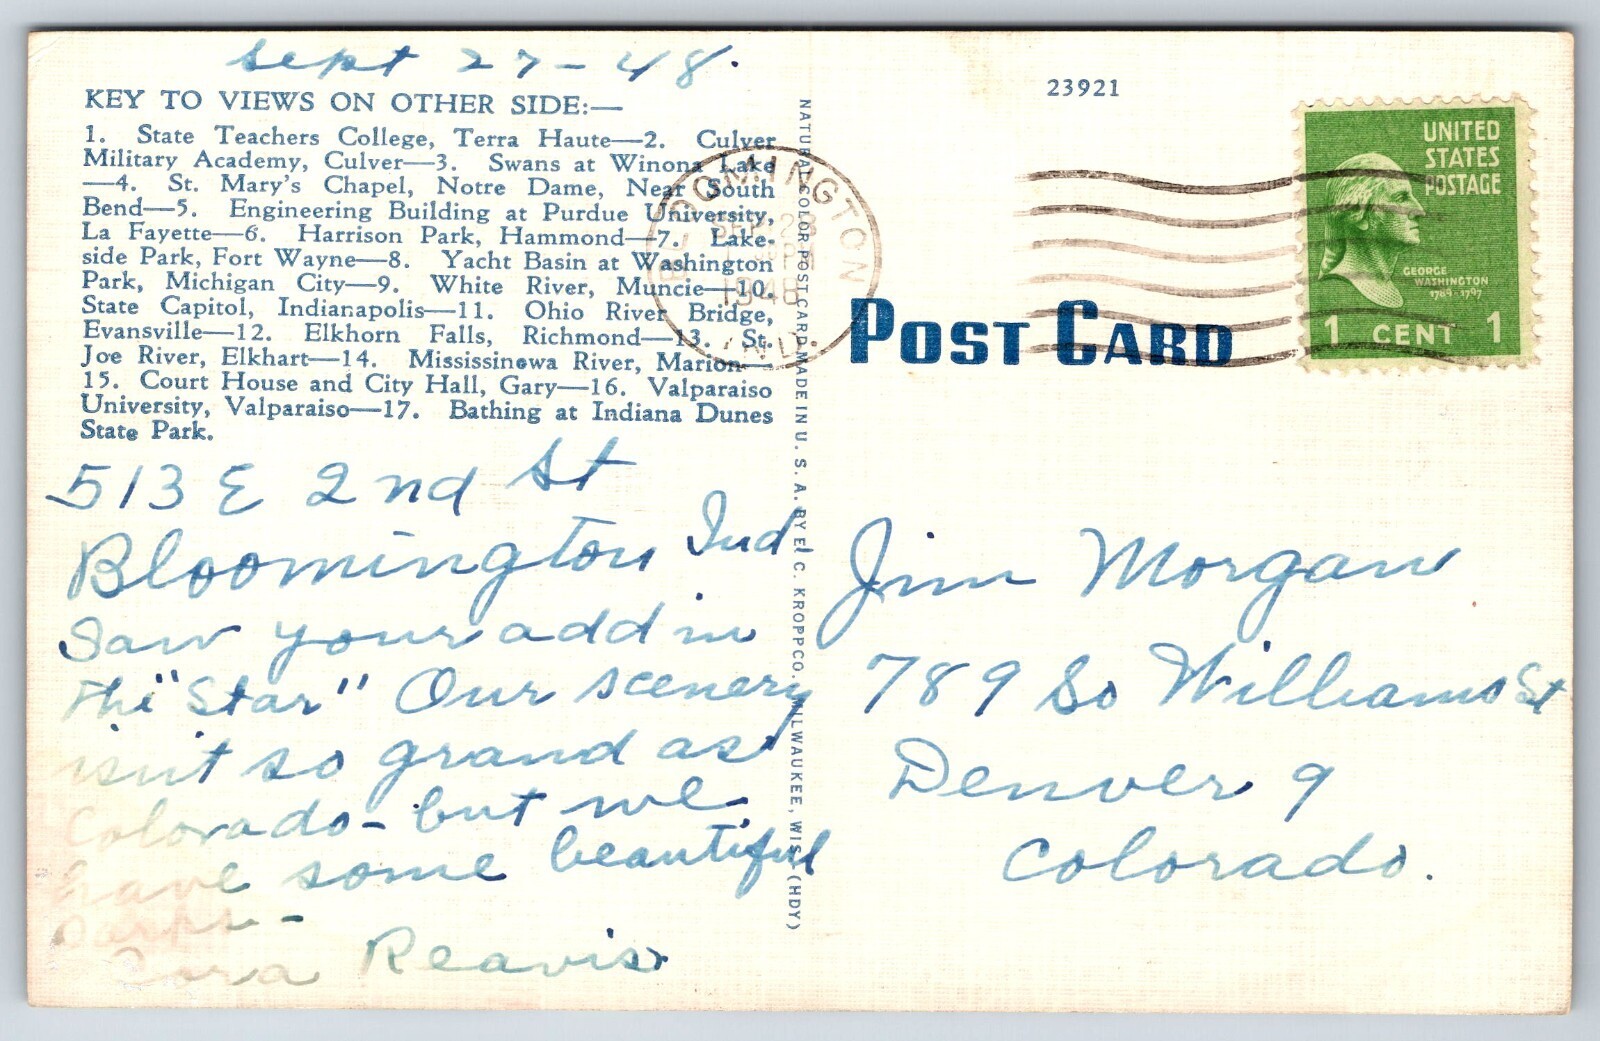 Sept 27 - 48.
KEY TO VIEWS ON OTHER SIDE:—
1. State Teachers College, Terra Haute—2. Culver
Military Academy, Culver—3. Swans at Winona Lake
—4. St. Mary's Chapel, Notre Dame, Near South
Bend—5. Engineering Building at Purdue University,
La Fayette—6. Harrison Park, Hammond—7. Lake-
side Park, Fort Wayne—8. Yacht Basin at Washington
Park, Michigan City—9. White River, Muncie—10.
State Capitol, Indianapolis—11. Ohio River Bridge,
Evansville—12. Elkhorn Falls, Richmond—13. St.
Joe River, Elkhart—14. Mississinewa River, Marion—
15. Court House and City Hall, Gary—16. Valparaiso
University, Valparaiso—17. Bathing at Indiana Dunes
State Park.
513 E 2nd St
Bloomington Ind
Saw your add in
the "Star" Our scenery
isn't so grand as
Colorado - but we
have some beautiful
parks -
Cora Reavis
NATURAL COLOR POST CARD MADE IN U. S. A. BY E. C. KROPP CO. MILWAUKEE, WIS. (HDY)
BLOOMINGTON
SEP 28
PM
1948
IND.
23921
POST CARD
UNITED
STATES
POSTAGE
GEORGE
WASHINGTON
1789-1797
1 CENT 1
Jim Morgan
789 So Williams St
Denver 9
Colorado.